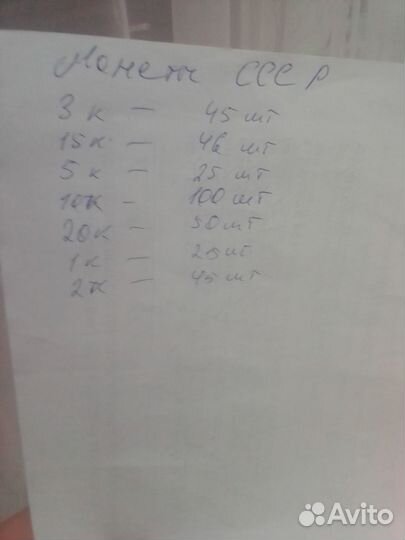 Монеты СССР
3 к — 45 шт
15 к — 46 шт
5 к — 25 шт
10 к — 100 шт
20 к — 50 шт
1 к — 25 шт
2 к — 45 шт
Avito